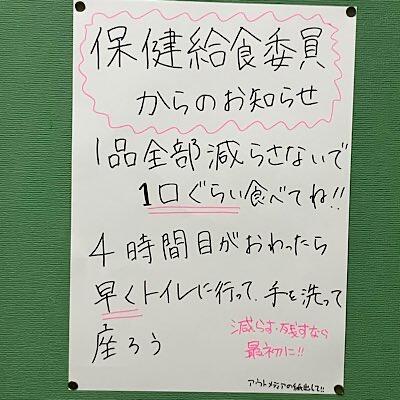 保健給食委員
からのお知らせ
1品全部減らさないで
1口ぐらい食べてね!!
4時間目がおわったら
早くトイレに行って、手を洗って
座ろう
減らす・残すなら
最初に!!
アウトメディアの紙出して!!